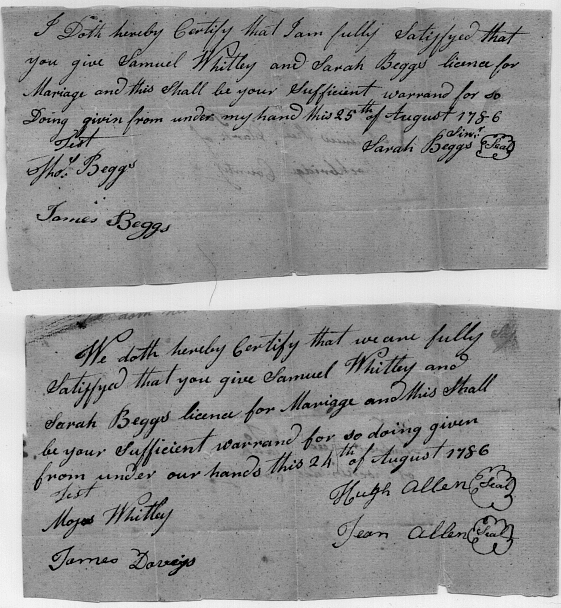 I Doth hereby Certify that I am fully Satisfyed that
you give Samuel Whitley and Sarah Beggs licence for
Mariage and this Shall be your Sufficient warrand for so
Doing givin from under my hand this 25th of August 1786
Test
Sarah Beggs Sinr. Seal
Thos. Beggs
James Beggs
We doth hereby Certify that we are fully
Satisfyed that you give Samuel Whitley and
Sarah Beggs licence for Mariage and this Shall
be your Sufficient warrand for so doing given
from under our hands this 24th of August 1786
Test
Hugh Allen Seal
Moses Whitley
Jean Allen Seal
James Daveys